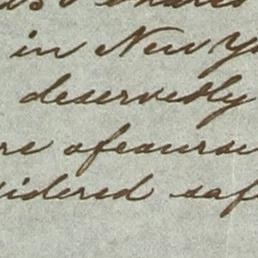 in New Y
deservedly
re ofcourse
sidered saf